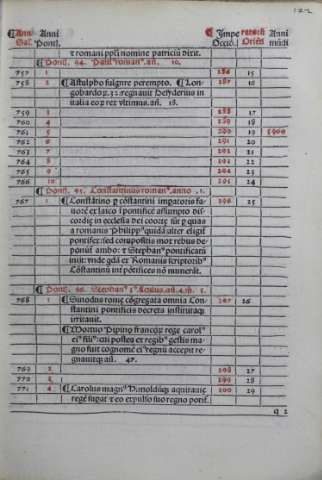 Anni Sal. Anni Pontif. Impe Occid. Orien. Anni mūdi
t romani ppľi nomine patriciū dixit.
Pontif. 94. Paul⁹ roman⁹. añ. 10.
757 1 186 15
758 2 Aistulpho fulgure perempto. Lon- 187 16
gobardoꝝ. 32. regnauit Desyderius in
italia eoꝝ rex vltimus. añ. 18.
759 3 188 17
760 4 189 18
761 5 190 19 5960
762 6 191 20
763 7 191 21
764 8 192 22
765 9 194 23
766 10 195 24
Pontif. 95. Cōstantinus roman⁹. anno .1.
767 1 Constātino p cōstantini impatoris fa- 196 25
uorē et laico ī pontificē assumpto dis-
cordie in ecclesia dei coorte sūt p quas
a romanis Philipp⁹ quidā alter eligit
pontifex: sed compositis mox rebus de-
ponūt ambo: t Stephan⁹ pontificatū
init: vnde qdā et Romanis scriptorib⁹
Cōstantinū int̄ pōtifices nō numerāt.
Pontif. 96. Stephan⁹
768 1 Sinodus rome cōgregata omnia Con- 197 26
stantini pontificis decreta institutaqꝫ
irritauit.
Mortuo Pipino francoꝝ rege carol⁹
ei⁹ fili⁹: cui postea et regib⁹ gestis ma-
gno fuit cognomē ei⁹ regnū accepit re-
gnauitqꝫ añ. 47.
769 2 198 27
770 3 199 28
771 4 Carolus magn⁹ Hunoldūqꝫ aquitanie 200 29
regē fugat t eo expulso suo regno potit̄.
q 2